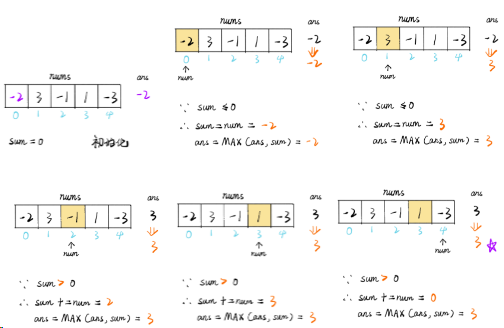 nums ans
-2 3 -1 1 -3 -2
0 1 2 3 4
sum=0 初始化
nums ans
-2 3 -1 1 -3 -2
-2
0 1 2 3 4
num
∵ sum ≤ 0
∴ sum=num = -2
ans = MAX (ans, sum) = -2
nums ans
-2 3 -1 1 -3 -2
3
0 1 2 3 4
num
∵ sum ≤ 0
∴ sum=num = 3
ans = MAX (ans, sum) = 3
nums ans
-2 3 -1 1 -3 3
3
0 1 2 3 4
num
∵ sum > 0
∴ sum += num = 2
ans = MAX (ans, sum) = 3
nums ans
-2 3 -1 1 -3 3
3
0 1 2 3 4
num
∵ sum > 0
∴ sum += num = 3
ans = MAX (ans, sum) = 3
nums ans
-2 3 -1 1 -3 3
3
0 1 2 3 4
num
∵ sum > 0
∴ sum += num = 0
ans = MAX (ans, sum) = 3